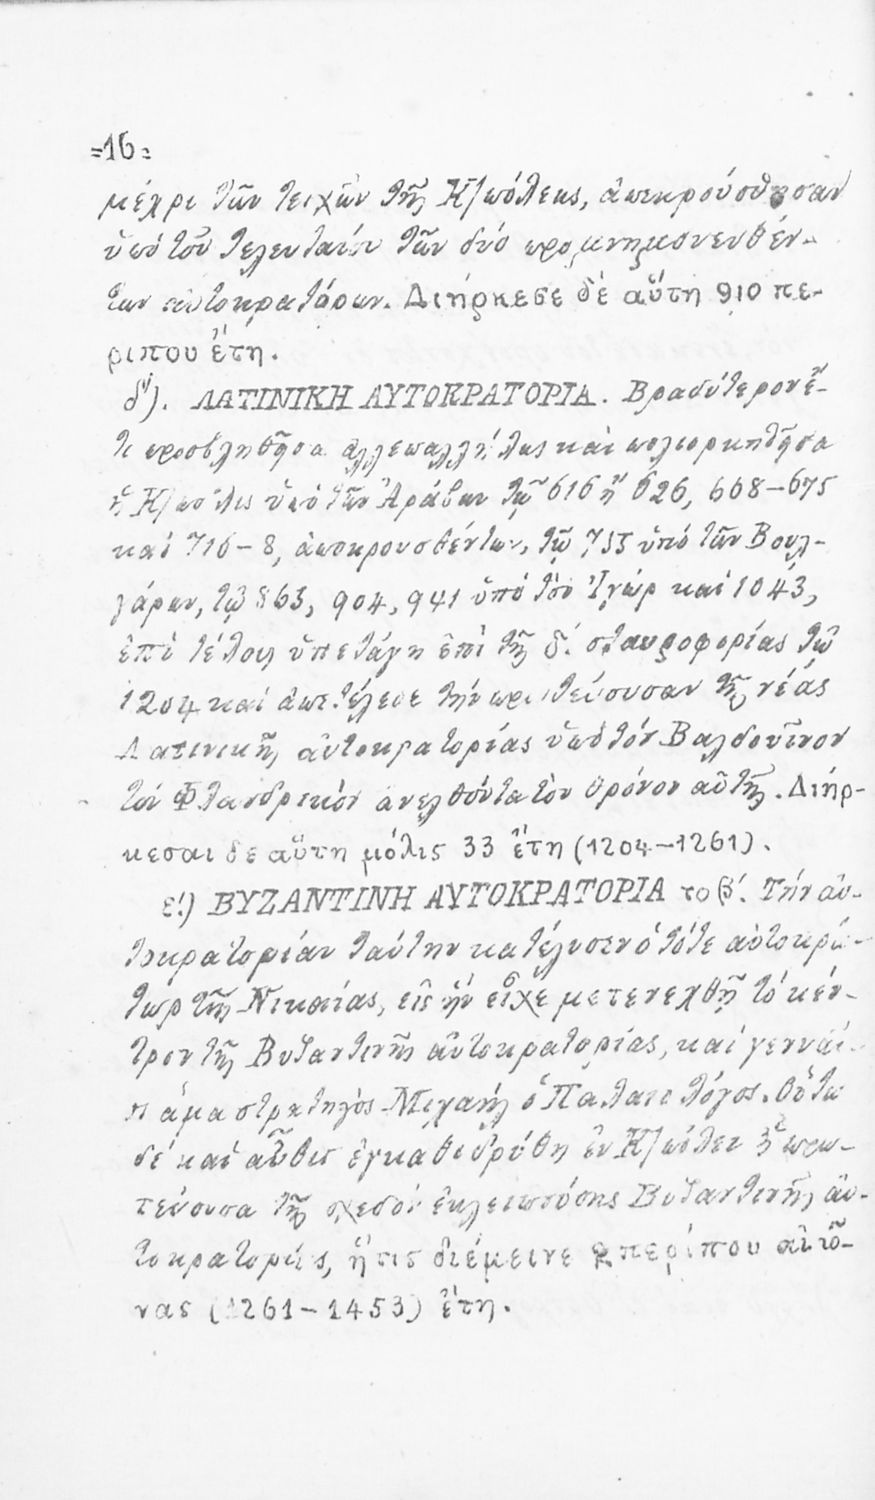 =16=
μέχρι τῶν τειχῶν τῆς Κ/πόλεως, ἀπεκρούσθησαν
ὑπό τοῦ τελευταίου τῶν δύο προμνημονευθέν-
των αὐτοκρατόρων. Διήρκεσε δέ αὕτη 910 πε-
ριπου ἔτη.
δ'). ΛΑΤΙΝΙΚΗ ΑΥΤΟΚΡΑΤΟΡΙΑ. Βραδύτερον ἔ-
τι προσβληθῆσα ἀλλεπαλλήλως καὶ πολιορκηθῆσα
ἡ Κ/πολις ὑπό τῶν Ἀράβων τῷ 616 ἤ 626, 668-675
καί 716-8, ἀποκρουσθέντων, τῷ 755 ὑπό τῶν Βουλ-
γάρων, τῷ 863, 904, 941 ὑπό τοῦ Ἰγώρ καί 1043,
ἐπί τέλους ὑπετάγη ἐπί τῆς δ'. σταυροφορίας τῷ
1204 καί ἀπετέλεσε τήν πρωτεύουσαν τῆς νέας
Λατινικῆς αὐτοκρατορίας ὑπό τόν Βαλδουῖνον
τόν Φλανδρικόν ἀνελθόντα τόν θρόνον αὐτῆς. Διήρ-
κεσαι δε αὕτη μόλις 33 ἔτη (1204-1261).
ε'.) ΒΥΖΑΝΤΙΝΗ ΑΥΤΟΚΡΑΤΟΡΙΑ το β'. Τήν αὐ-
τοκρατορίαν ταύτην κατέλυσεν ὁ τότε αὐτοκρά-
τωρ τῆς Νικαίας, εἰς ἥν εἶχε μετενεχθῇ τό κέν-
τρον τῆς Βυζαντινῆς αὐτοκρατορίας, καί γενναῖ-
ος ἅμα στρατηγός Μιχαήλ ὁ Παλαιολόγος. Οὕτω
δέ καί αὖθις ἐγκαθιδρύθη ἐν Κ/πόλει ἡ πρω-
τεύουσα τῆς σχεδόν ἐκλειπούσης Βυζαντινῆς αὐ-
τοκρατορίας, ἥτις διέμεινε 2 περίπου αἰῶ-
νας (1261-1453) ἔτη.